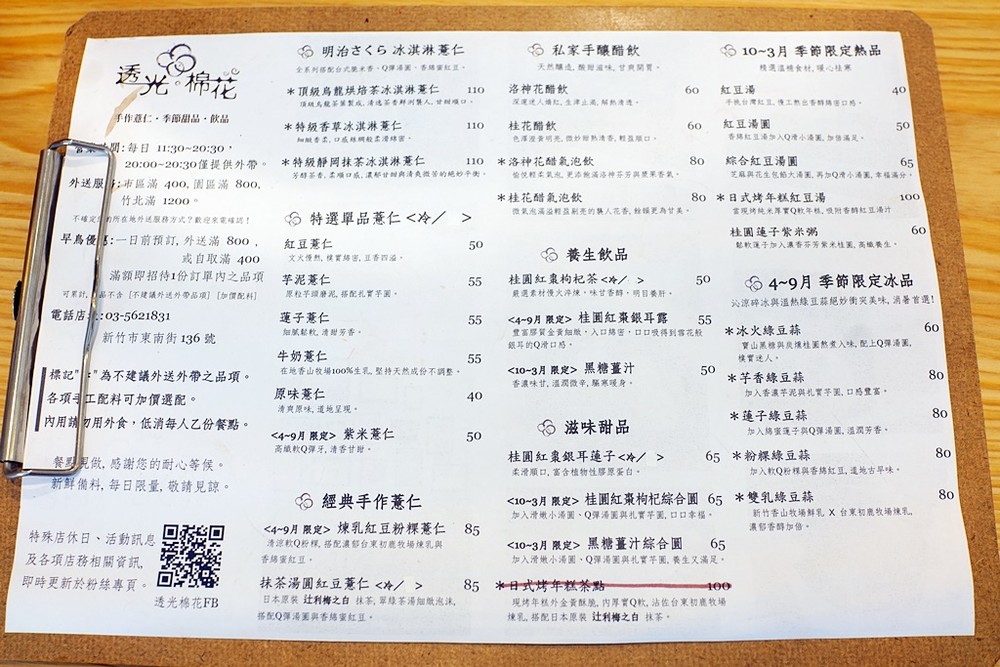 透光。棉花
手作薏仁・季節甜品・飲品
時間:每日 11:30~20:30,
20:00~20:30僅提供外帶。
外送服務:市區滿 400, 園區滿 800,
竹北滿 1200。
早鳥優惠:一日前預訂, 外送滿 800 ,
或自取滿 400
滿額即招待1份訂單內之品項
[不建議外送外帶品項] [加價配料]
電話 :03-5621831
新竹市東南街 136 號
標記" "為不建議外送外帶之品項。
各項手工配料可加價選配。
內用請勿用外食，低消每人乙份餐點。
餐點現做, 感謝您的耐心等候。
新鮮備料, 每日限量, 敬請見諒。
特殊店休日、活動訊息
及各項店務相關資訊,
即時更新於粉絲專頁。
透光棉花FB
明治さくら 冰淇淋薏仁
全系列搭配台式脆米香、Q彈湯圓、香綿蜜紅豆。
*頂級烏龍烘焙茶冰淇淋薏仁 110
頂級烏龍茶葉製成, 清逸茶香鮮冽襲人, 甘甜順口。
*特級香草冰淇淋薏仁 110
細緻香柔, 口感絲綢般柔滑綿密。
*特級靜岡抹茶冰淇淋薏仁 110
芳醇茶香, 柔順口感, 濃郁甘甜與清爽微苦的絕妙平衡。
特選單品薏仁 <冷/ >
紅豆薏仁 50
文火慢熬, 樸實綿密, 豆香四溢。
芋泥薏仁 55
原粒芋頭磨泥, 搭配扎實芋圓。
蓮子薏仁 55
細膩鬆軟, 清甜芳香。
牛奶薏仁 55
在地香山牧場100%生乳, 堅持天然成份不調整。
原味薏仁 40
清爽原味, 道地呈現。
<4~9月 限定> 紫米薏仁 50
高纖軟Q彈牙, 清香甘甜。
經典手作薏仁
<4~9月 限定> 煉乳紅豆粉粿薏仁 85
清涼軟Q粉粿, 搭配濃郁台東初鹿牧場煉乳與
香綿蜜紅豆。
抹茶湯圓紅豆薏仁 <冷/ > 85
日本原裝 辻利梅之白 抹茶, 翠綠茶湯細緻泡沫,
搭配Q彈湯圓與香綿蜜紅豆。
私家手釀醋飲
天然釀造, 酸甜滋味, 甘爽開胃。
洛神花醋飲 60
深邃迷人緋紅, 生津止渴, 解熱清透。
桂花醋飲 60
色澤澄黃明亮, 微妙甜熟清香, 輕盈順口。
*洛神花醋氣泡飲 80
愉悅輕柔氣泡, 更添飽滿洛神芬芳與漿果香氣。
*桂花醋氣泡飲 80
微氣泡滿溢輕盈剔亮的襲人花香, 餘韻更為甘美。
養生飲品
桂圓紅棗枸杞茶<冷/ > 50
嚴選素材慢火淬煉，味甘香醇，明目養肝。
<4~9月 限定> 桂圓紅棗銀耳露 55
豐富膠質金黃細緻，入口綿密，口口吸得到雪花般
銀耳的Q滑口感。
<10~3月 限定> 黑糖薑汁 50
香濃味甘, 溫潤微辛, 驅寒暖身。
滋味甜品
桂圓紅棗銀耳蓮子<冷/ > 65
柔滑順口, 富含植物性膠原蛋白。
<10~3月 限定> 桂圓紅棗枸杞綜合圓 65
加入滑嫩小湯圓、Q彈湯圓與扎實芋圓, 口口幸福。
<10~3月 限定> 黑糖薑汁綜合圓 65
加入滑嫩小湯圓、Q彈湯圓與扎實芋圓, 養生又滿足。
*日式烤年糕茶點 100
現烤年糕外金黃酥脆, 內厚實Q軟, 沾佐台東初鹿牧場
煉乳, 搭配日本原裝 辻利梅之白 抹茶。
10~3月 季節限定熱品
精選溫補食材, 暖心祛寒
紅豆湯 40
手挑台灣紅豆, 慢工熬出香醇綿密口感。
紅豆湯圓 50
香綿紅豆湯加入Q滑小湯圓, 加倍滿足。
綜合紅豆湯圓 65
芝麻與花生包餡大湯圓, 再加Q滑小湯圓, 幸福滿分。
*日式烤年糕紅豆湯 100
當現烤純米厚實Q軟年糕, 吸附香醇紅豆湯汁
桂圓蓮子紫米粥 60
鬆軟蓮子加入濃香芬芳紫米桂圓, 高纖養生。
4~9月 季節限定冰品
沁涼碎冰與溫熱綠豆蒜絕妙衝突美味, 消暑首選!
*冰火綠豆蒜 60
寶山黑糖與炭燻桂圓熬煮入味, 配上Q彈湯圓,
樸實迷人。
*芋香綠豆蒜 80
加入香濃芋泥與扎實芋圓, 口感豐富。
*蓮子綠豆蒜 80
加入綿蜜蓮子與Q彈湯圓, 溫潤芳香。
*粉粿綠豆蒜 80
加入軟Q粉粿與香綿紅豆, 道地古早味。
*雙乳綠豆蒜 80
新竹香山牧場鮮乳 X 台東初鹿牧場煉乳,
濃郁香醇加倍。